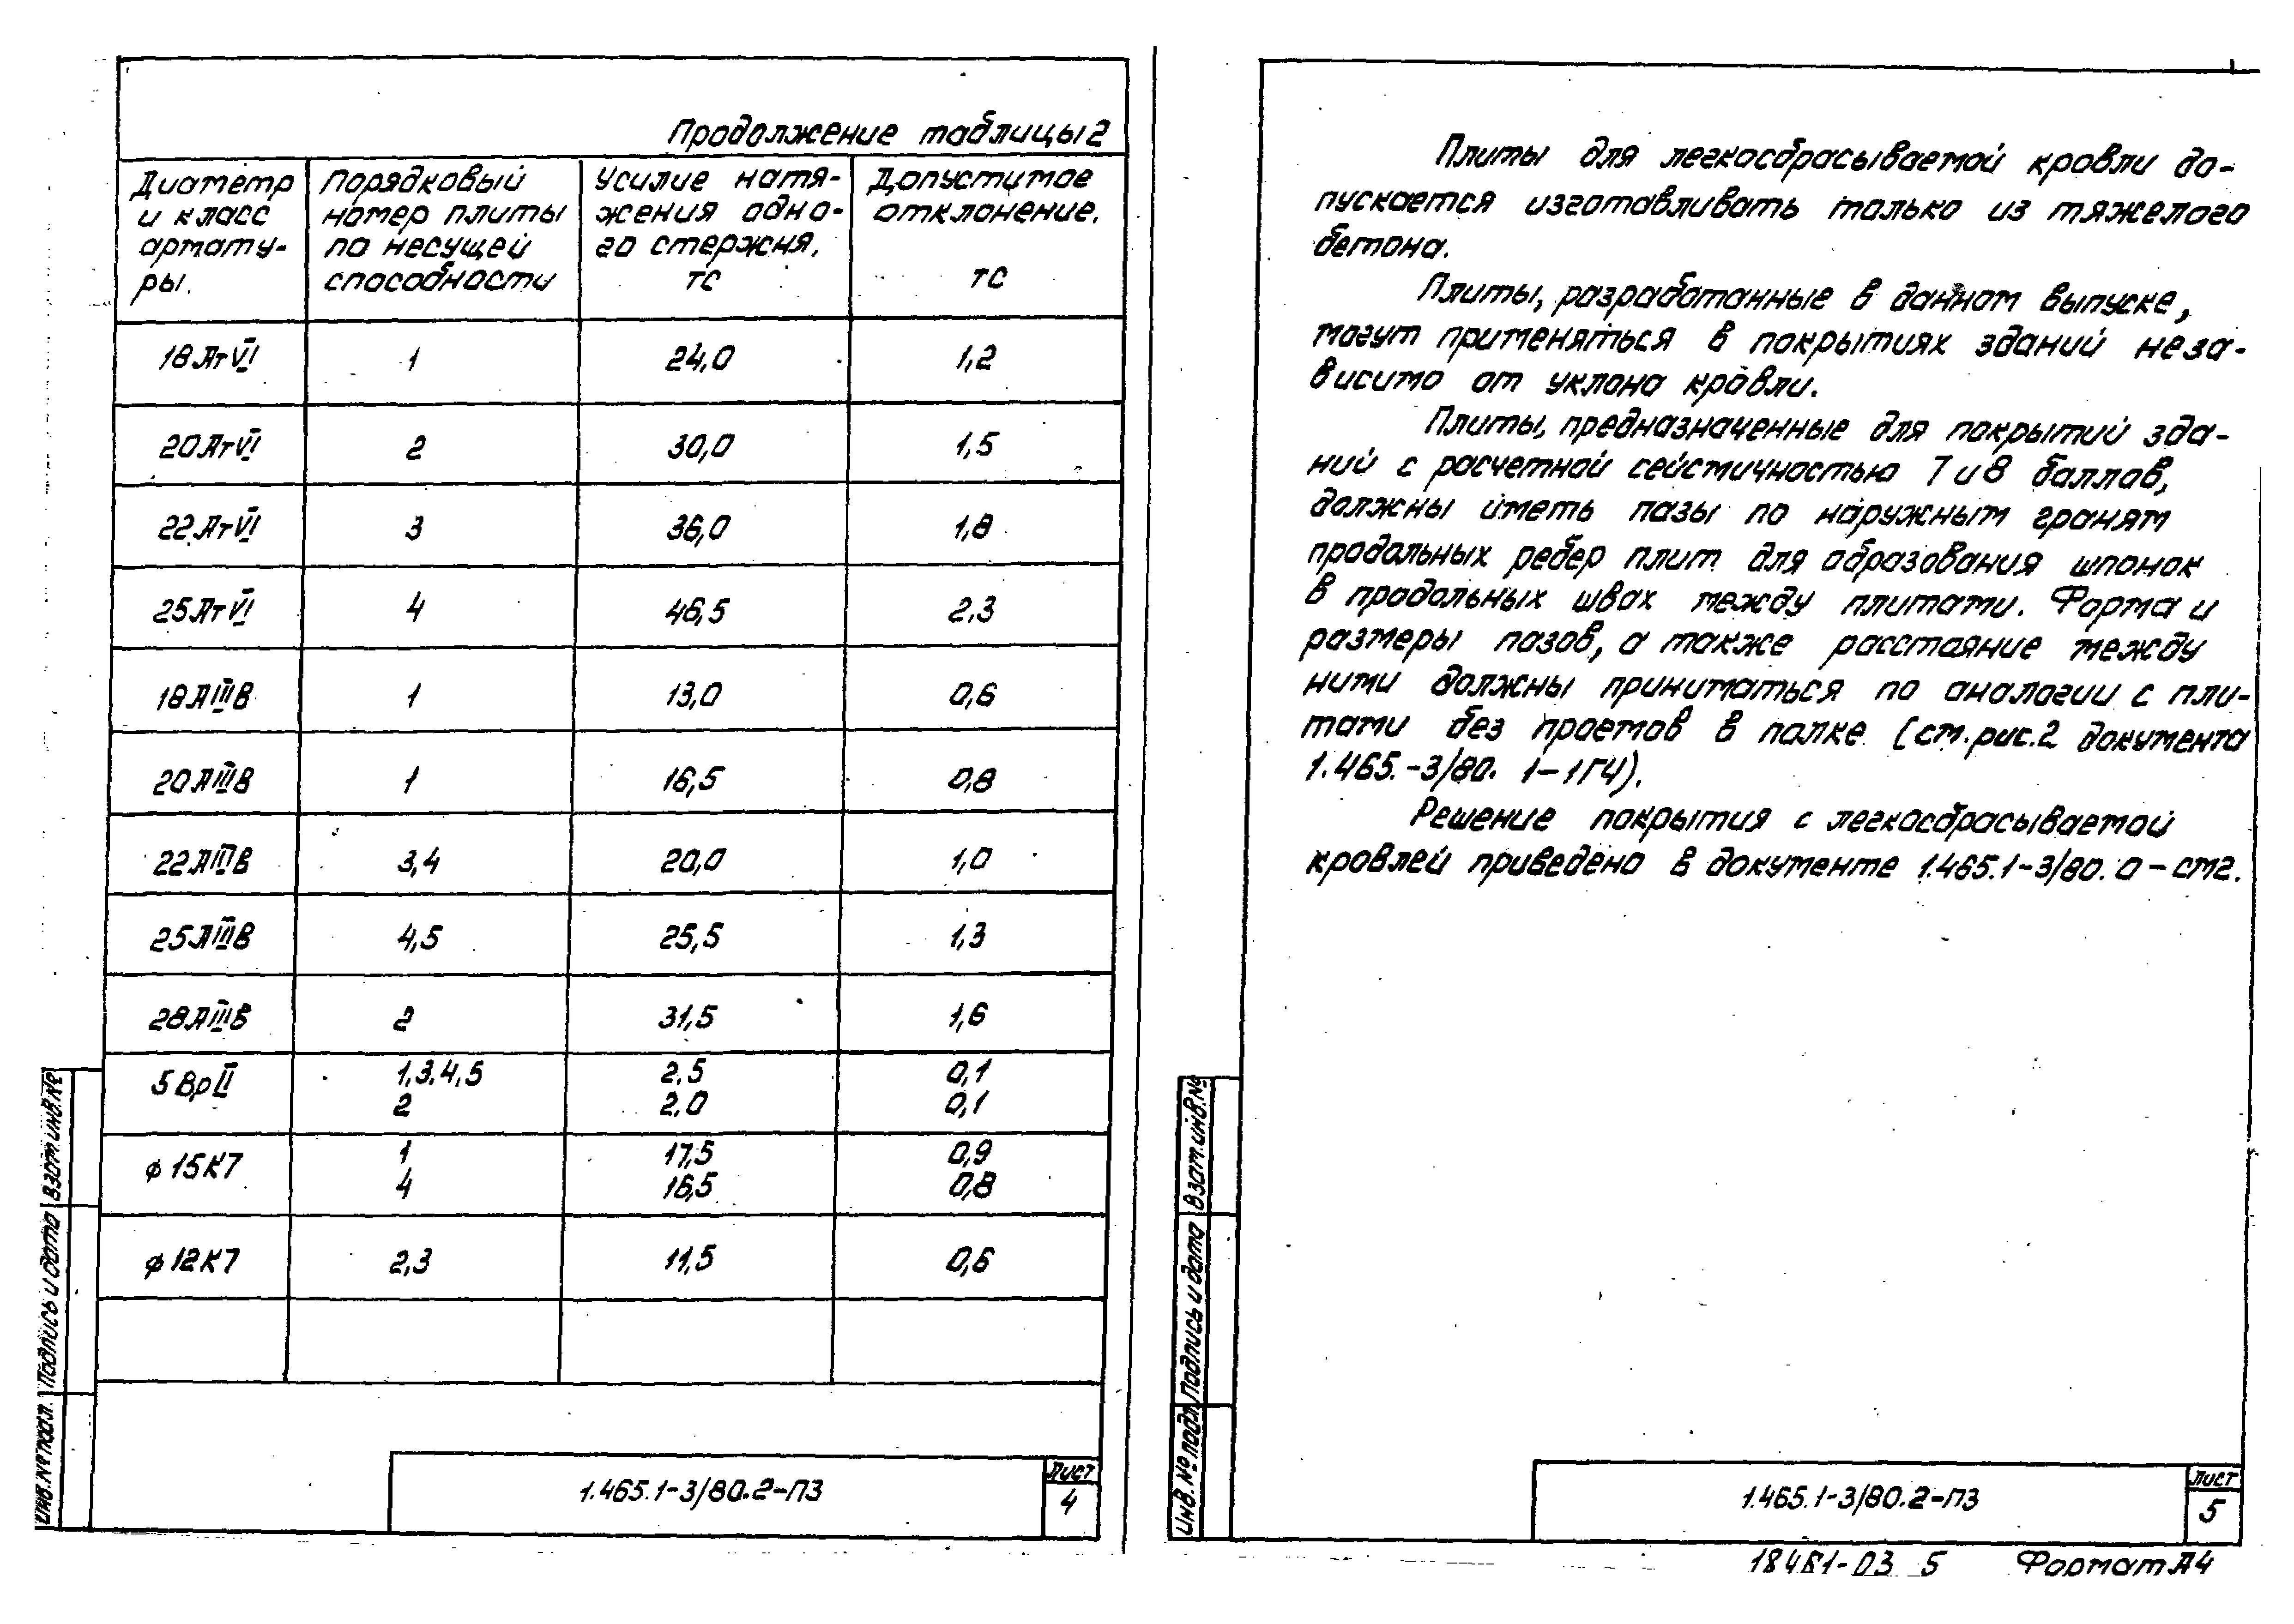 Продолжение таблицы 2
Диаметр и класс армату-ры. | Порядковый номер плиты по несущей способности | Усилие натя-жения одно-го стержня, тс | Допустимое отклонение, тс
18 АтVI | 1 | 24,0 | 1,2
20 АтVI | 2 | 30,0 | 1,5
22 АтVI | 3 | 36,0 | 1,8
25 АтVI | 4 | 46,5 | 2,3
18 АIIIВ | 1 | 13,0 | 0,6
20 АIIIВ | 1 | 16,5 | 0,8
22 АIIIВ | 3,4 | 20,0 | 1,0
25 АIIIВ | 4,5 | 25,5 | 1,3
28 АIIIВ | 2 | 31,5 | 1,6
5 ВрII | 1,3,4,5 | 2.5 | 0,1
2 | 2.0 | 0,1
ф 15К7 | 1 | 17,5 | 0,9
4 | 16,5 | 0,8
ф 12К7 | 2,3 | 11,5 | 0,6
Инв.№ подл. Подпись и дата Взам.инв.№
1.465.1-3/80.2-ПЗ
Лист
4
Плиты для легкосбрасываемой кровли до-
пускается изготавливать только из тяжелого
бетона.
Плиты, разработанные в данном выпуске,
могут применяться в покрытиях зданий неза-
висимо от уклона кровли.
Плиты, предназначенные для покрытий зда-
ний с расчетной сейсмичностью 7 и 8 баллов,
должны иметь пазы по наружным граням
продольных ребер плит для образования шпонок
в продольных швах между плитами. Форма и
размеры пазов, а также расстояние между
ними должны приниматься по аналогии с пли-
тами без проемов в полке (см. рис.2 документа
1.465.-3/80. 1-1ГЧ).
Решение покрытия с легкосбрасываемой
кровлей приведено в документе 1.465.1-3/80.0-см2.
Инв.№ подл. Подпись и дата Взам.инв.№
1.465.1-3/80.2-ПЗ
Лист
5
18461-03 5 Формат А4